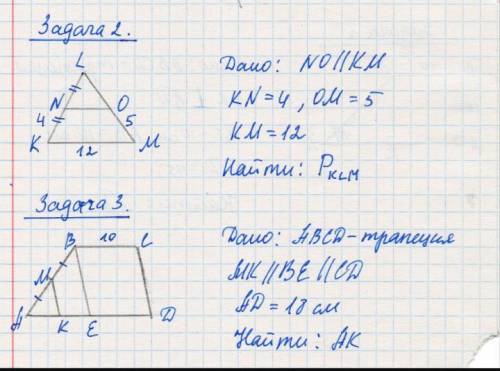 Задача 2.
L
N
O
4
5
K
12
M
Дано: NO || KM
KN = 4, OM = 5
KM = 12
Найти: P KLM
Задача 3.
B
10
C
M
A
K
E
D
Дано: ABCD - трапеция
MK || BE || CD
AD = 18 см
Найти: AK